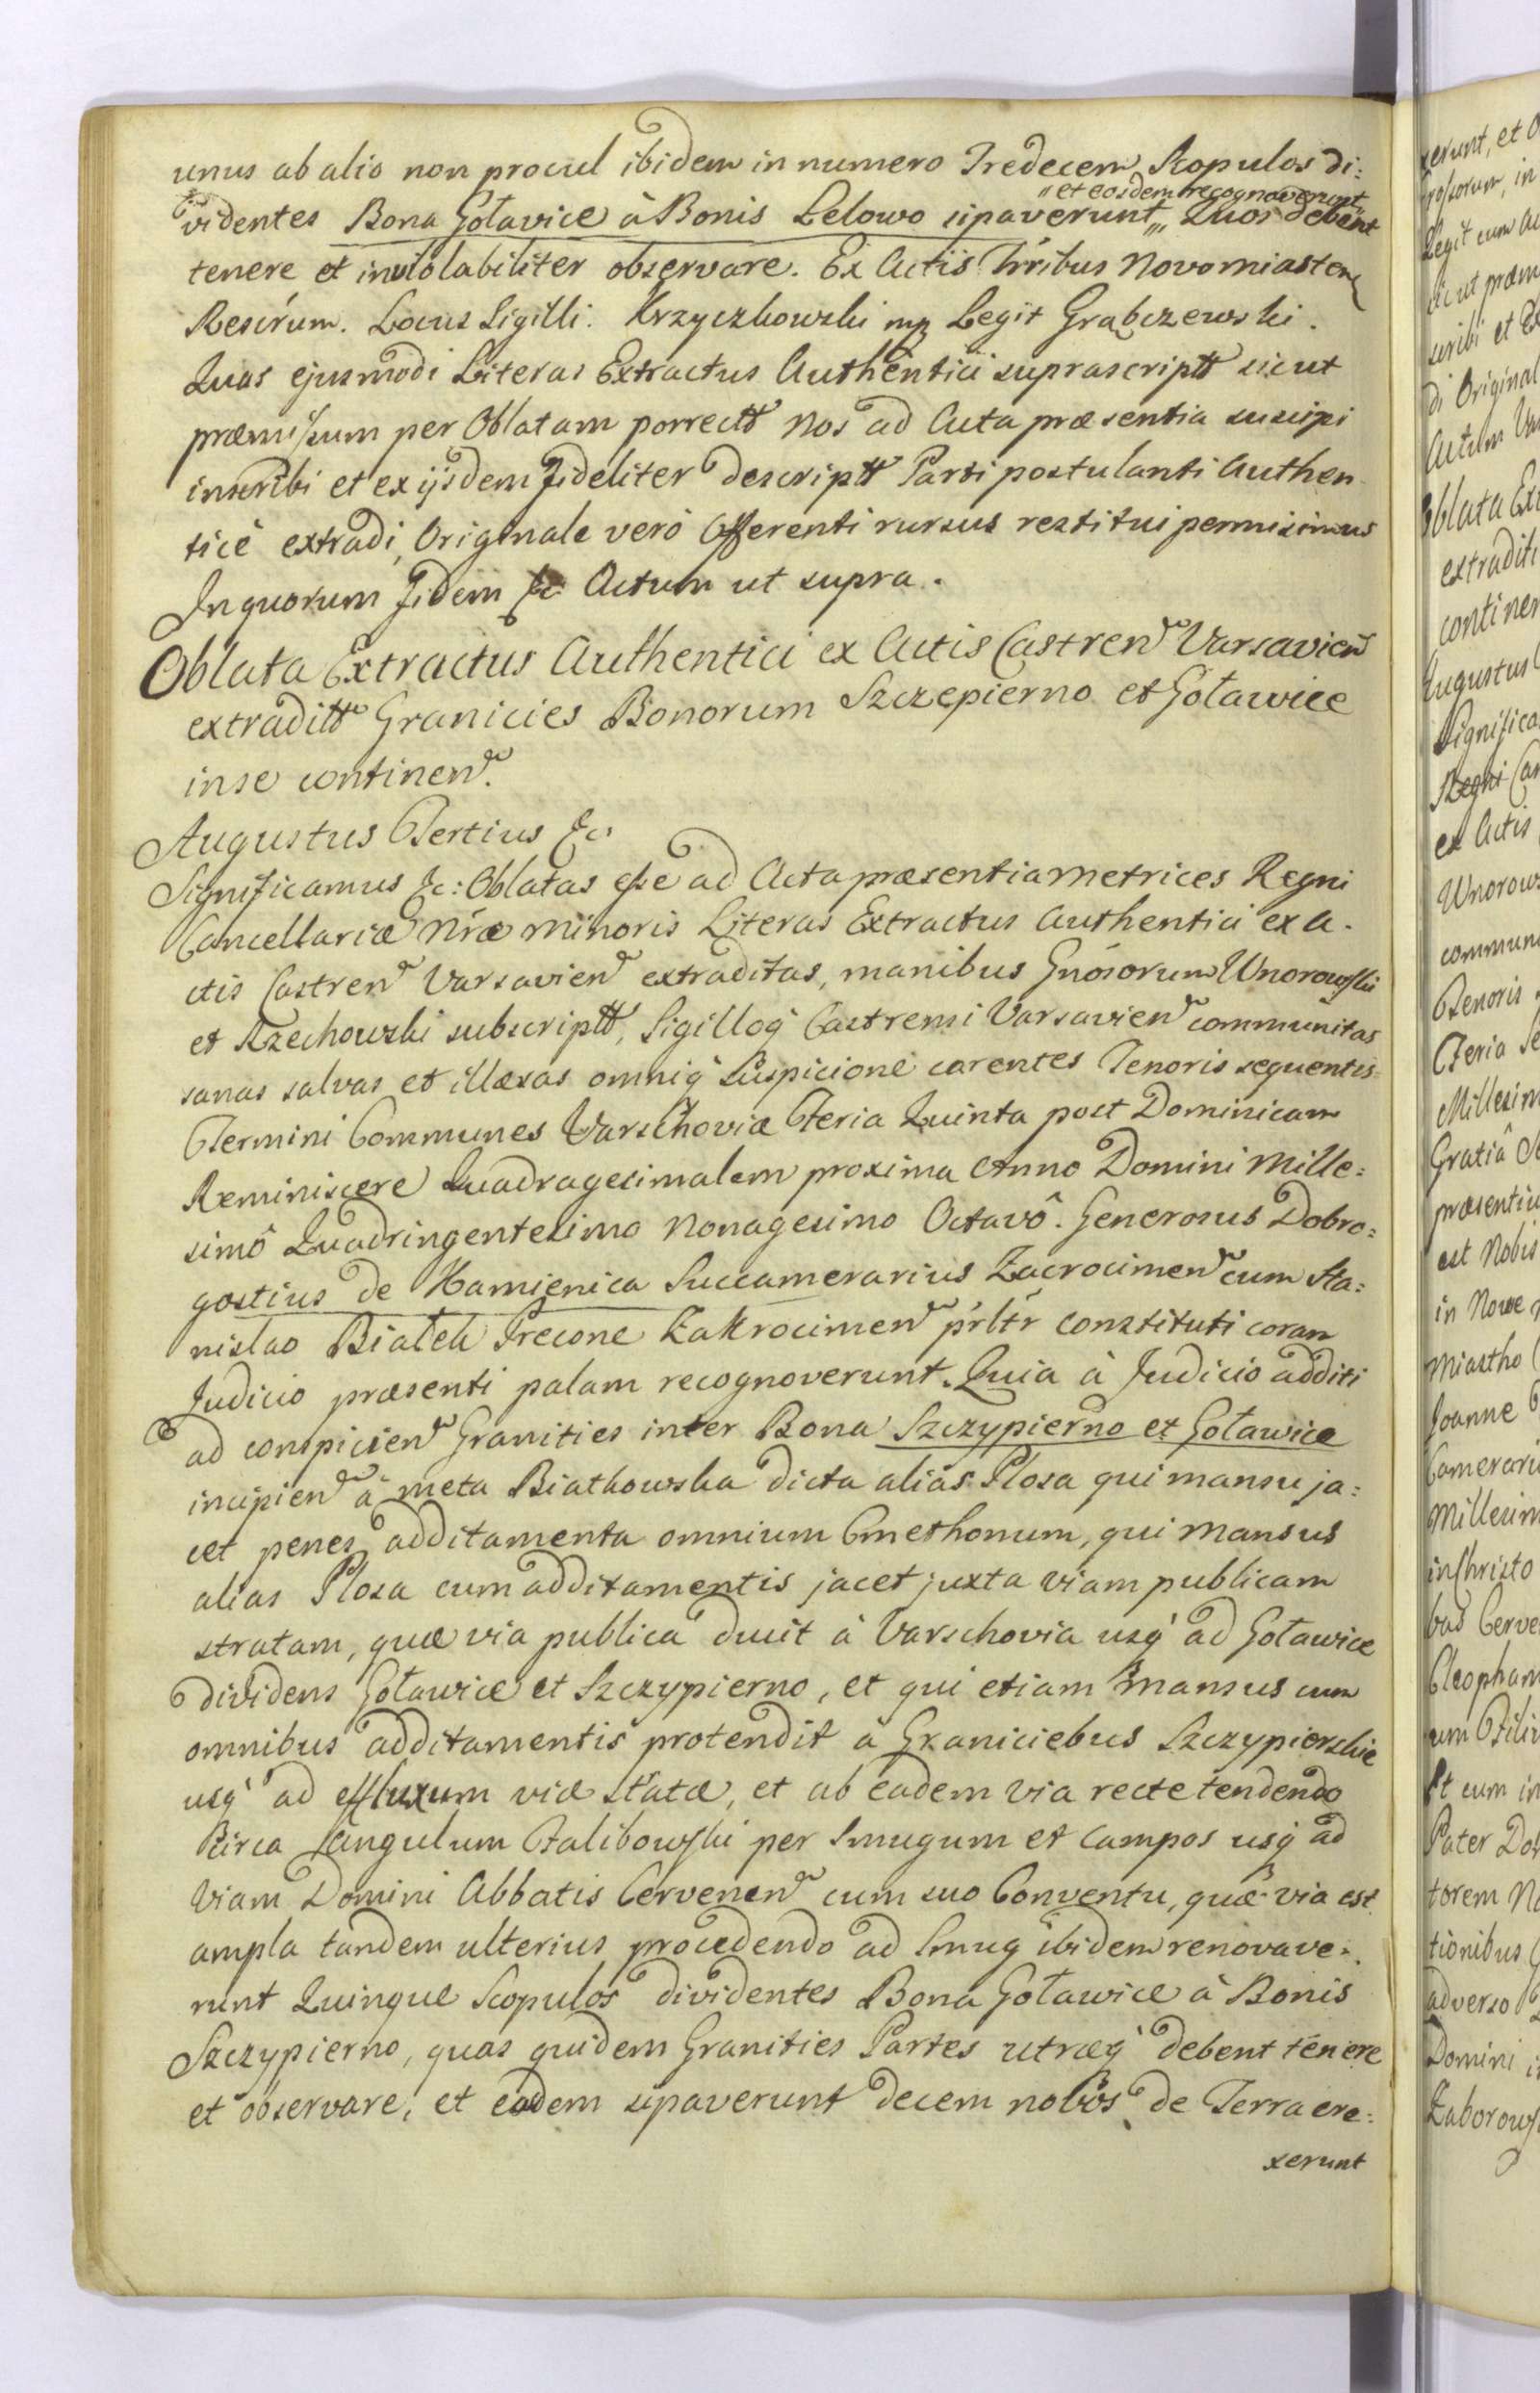 unus ab alio non procul ibidem in numero Tredecem Scopulos di:
„et eosdem recognoverunt„
videntes Bona Goławice à Bonis Lelowo sipaverunt„, Quos debent
tenere et inviolabiliter observare. Ex Actis Trribus Novomiasten
Rescrum. Locus Sigilli. Krzyczkowski mp Legit Grabczewski.
Quas ejusmodi Literas Extractus Authentici suprascriptt sicut
præmissum per Oblatam porrectt Nos ad Acta præsentia suscipi
inscribi et ex ijsdem Fideliter descriptt Parti postulanti Authen
ticè extradi, Originale verò Offerenti rursus restitui permisimus
In quorum Fidem &c Actum ut supra.
Oblata Extractus Authentici ex Actis Castren Varsavien
extraditt Granicies Bonorum Szczepierno et Goławice
in se continen.
Augustus Tertius &c
Significamus &c: Oblatas esse ad Acta præsentia Metrices Regni
Cancellariæ Nræ Minoris Literas Extractus Authentici ex A.
ctis Castren Varsavien extraditas, manibus Gnosorum Wnorowski
et Rzechowski subscriptt, Sigilloq Castrensi Varsavien communitas
sanas salvas et illæsas omniq suspicione carentes Tenoris sequentis
Termini Communes Varschoviæ Feria Quinta post Dominicam
Reminiscere Quadragesimalem proxima Anno Domini Mille:
simô Quadringentesimo Nonagesimo Octavô. Generosus Dobro:
gostius de Kamienica Succamerarius Zacrocimen cum Sta:
nislao Białek Precone Zakrocimen prltr constituti coram
Judicio præsenti palam recognoverunt. Quia à Judicio additi
ad conspicien Granities inter Bona Szczypierno et Goławice
incipien à meta Białkowska dicta aliàs Plosa qui mansu ja:
cet penes additamenta omnium Cmethonum, qui Mansus
alias Plosa cum additamentis jacet juxta viam publicam
stratam, quæ via publica ducit à Varschovia usq ad Goławice
dividens Goławice et Szczypierno, et qui etiam Mansus cum
omnibus additamentis protendit à Graniciebus Szczypierskie
usq ad effluxum viæ statæ, et ab eadem via recte tendendo
circa Angulum Falibowski per Smugum et Campos usq ad
Viam Domini Abbatis Cervenen cum suo Conventu, quæ via est
ampla tandem ulterius procedendo ad Smug ibidem renovave:
runt Quinque Scopulos dividentes Bona Goławice à Bonis
Szczypierno, quas quidem Granities Partes utræq debent tenere
et observare, et eodem sipaverunt decem nobos de Terra ere:
xerunt